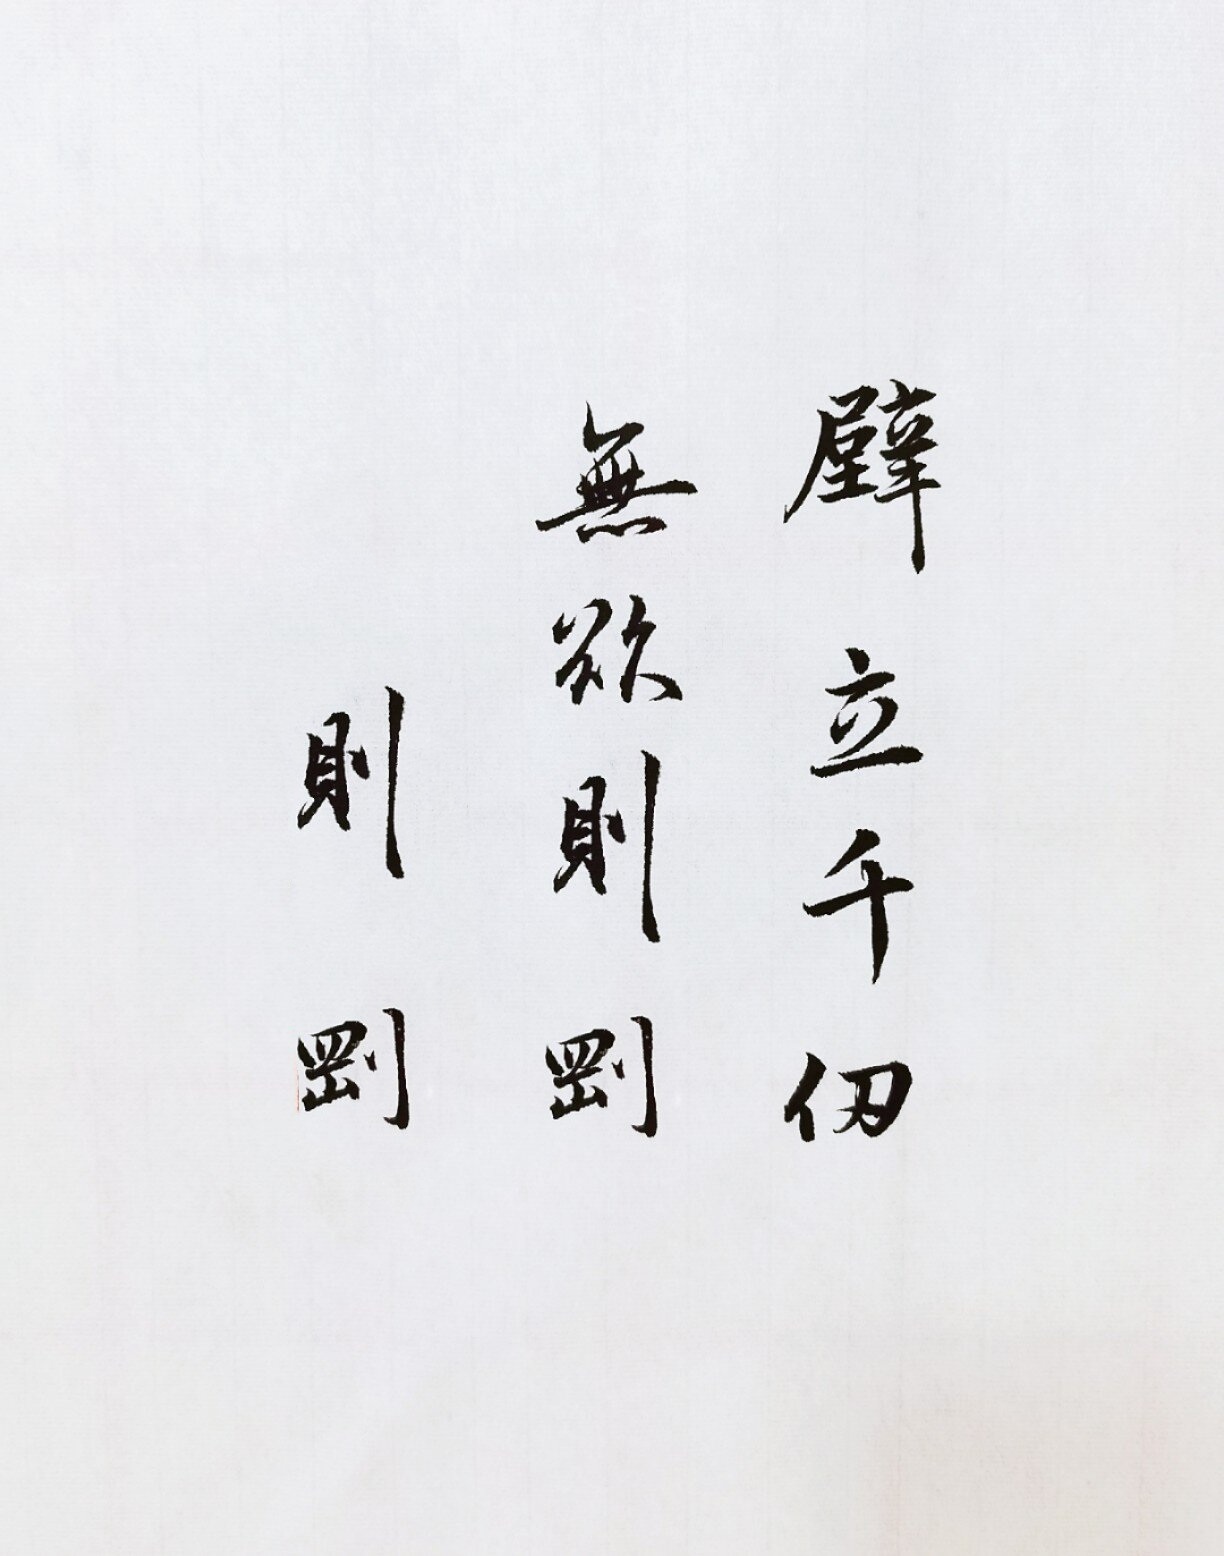 壁立千仞
無欲則剛
則剛